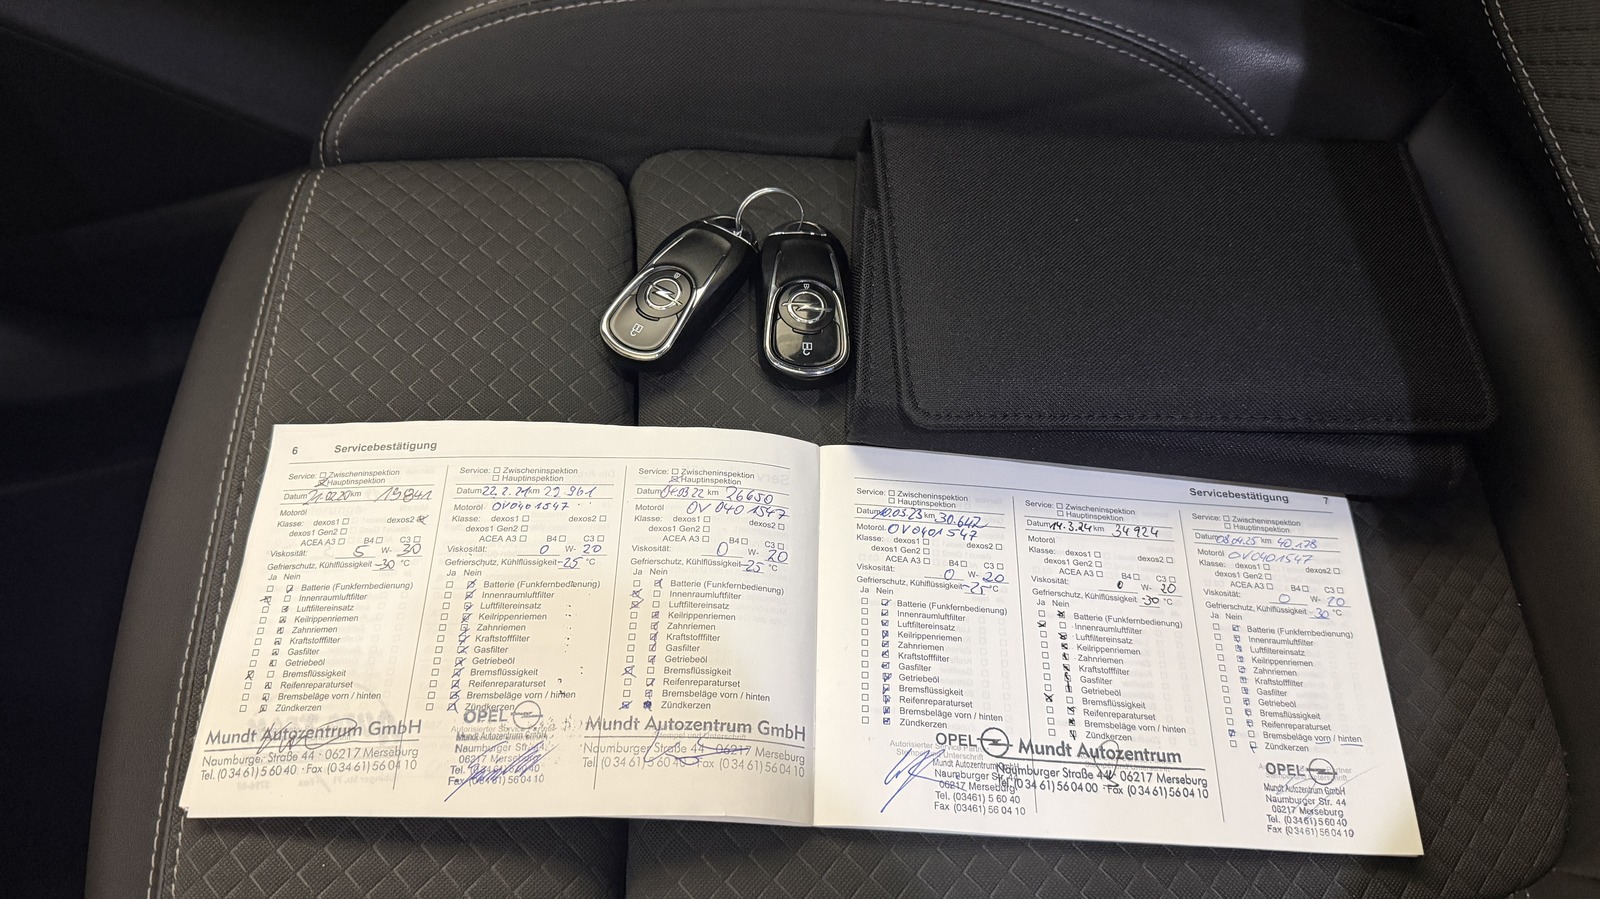 6 Servicebestätigung
Service: Zwischeninspektion
Hauptinspektion
Datum 21.02.20 km 19841
Motoröl
Klasse: dexos1 dexos2
dexos1 Gen2
ACEA A3 B4 C3
Viskosität: 5 W- 30
Gefrierschutz, Kühlflüssigkeit -30 °C
Ja Nein
Batterie (Funkfernbedienung)
Innenraumluftfilter
Luftfiltereinsatz
Keilrippenriemen
Zahnriemen
Kraftstofffilter
Gasfilter
Getriebeöl
Bremsflüssigkeit
Reifenreparaturset
Bremsbeläge vorn / hinten
Zündkerzen
Mundt Autozentrum GmbH
Naumburger Straße 44 · 06217 Merseburg
Tel. (0 34 61) 5 60 40 · Fax (0 34 61) 56 04 10
Service: Zwischeninspektion
Hauptinspektion
Datum 22.2.21 km 23 961
Motoröl OV0401547
Klasse: dexos1 dexos2
dexos1 Gen2
ACEA A3 B4 C3
Viskosität: 0 W- 20
Gefrierschutz, Kühlflüssigkeit -25 °C
Ja Nein
Batterie (Funkfernbedienung)
Innenraumluftfilter
Luftfiltereinsatz
Keilrippenriemen
Zahnriemen
Kraftstofffilter
Gasfilter
Getriebeöl
Bremsflüssigkeit
Reifenreparaturset
Bremsbeläge vorn / hinten
Zündkerzen
OPEL
Mundt Autozentrum GmbH
Naumburger Str. 44
06217 Merseburg
Tel. (03461) 5 60 40
Fax (03461) 56 04 10
Service: Zwischeninspektion
Hauptinspektion
Datum 04.03.22 km 26650
Motoröl OV 040 1547
Klasse: dexos1 dexos2
dexos1 Gen2
ACEA A3 B4 C3
Viskosität: 0 W- 20
Gefrierschutz, Kühlflüssigkeit -25 °C
Ja Nein
Batterie (Funkfernbedienung)
Innenraumluftfilter
Luftfiltereinsatz
Keilrippenriemen
Zahnriemen
Kraftstofffilter
Gasfilter
Getriebeöl
Bremsflüssigkeit
Reifenreparaturset
Bremsbeläge vorn / hinten
Zündkerzen
Mundt Autozentrum GmbH
Naumburger Straße 44 · 06217 Merseburg
Tel. (0 34 61) 5 60 40 · Fax (0 34 61) 56 04 10
Servicebestätigung 7
Service: Zwischeninspektion
Hauptinspektion
Datum 10.03.23 km 30.642
Motoröl OV0401547
Klasse: dexos1 dexos2
dexos1 Gen2
ACEA A3 B4 C3
Viskosität: 0 W- 20
Gefrierschutz, Kühlflüssigkeit -25 °C
Ja Nein
Batterie (Funkfernbedienung)
Innenraumluftfilter
Luftfiltereinsatz
Keilrippenriemen
Zahnriemen
Kraftstofffilter
Gasfilter
Getriebeöl
Bremsflüssigkeit
Bremsbeläge vorn / hinten
Zündkerzen
OPEL
Mundt Autozentrum GmbH
Naumburger Str. 44
06217 Merseburg
Tel. (03461) 5 60 40
Fax (03461) 56 04 10
Service: Zwischeninspektion
Hauptinspektion
Datum 14.3.24 km 34924
Motoröl
Klasse: dexos1 dexos2
dexos1 Gen2
ACEA A3 B4 C3
Viskosität: 0 W- 20
Gefrierschutz, Kühlflüssigkeit -30 °C
Ja Nein
Batterie (Funkfernbedienung)
Innenraumluftfilter
Luftfiltereinsatz
Keilrippenriemen
Zahnriemen
Kraftstofffilter
Gasfilter
Getriebeöl
Bremsflüssigkeit
Reifenreparaturset
Bremsbeläge vorn / hinten
Zündkerzen
Mundt Autozentrum
Naumburger Straße 44 · 06217 Merseburg
Tel. (0 34 61) 56 04 00 · Fax (0 34 61) 56 04 10
Service: Zwischeninspektion
Hauptinspektion
Datum 08.04.25 km 40.178
Motoröl OV0401547
Klasse: dexos1 dexos2
dexos1 Gen2
ACEA A3 B4 C3
Viskosität: 0 W- 20
Gefrierschutz, Kühlflüssigkeit -30 °C
Ja Nein
Batterie (Funkfernbedienung)
Innenraumluftfilter
Luftfiltereinsatz
Keilrippenriemen
Zahnriemen
Kraftstofffilter
Gasfilter
Getriebeöl
Bremsflüssigkeit
Reifenreparaturset
Bremsbeläge vorn / hinten
Zündkerzen
OPEL
Mundt Autozentrum GmbH
Naumburger Str. 44
06217 Merseburg
Tel. (03461) 5 60 40
Fax (03461) 56 04 10